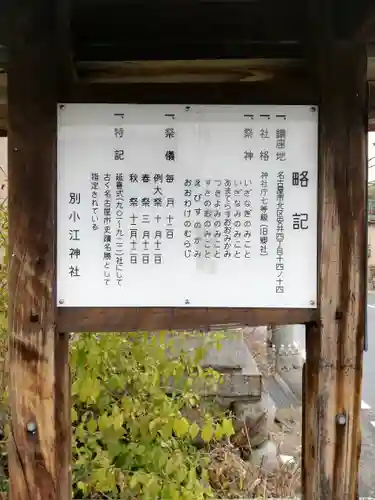 略記
『鎮座地 名古屋市北区安井四丁目十四ノ十四
『社格 神社庁七等級（旧郷社）
『祭神 いざなぎのみこと
いざなみのみこと
あまてらすおおみかみ
つきよみのみこと
すさのおのみこと
えびすのかみ
おおわけのむらじ
『祭儀 毎月十二日
例大祭 十月十二日
春祭 三月十二日
秋祭 十二月十二日
『特記 延喜式（九〇一～九二二）社にして
古く名古屋市史蹟名勝として
指定されている
別小江神社